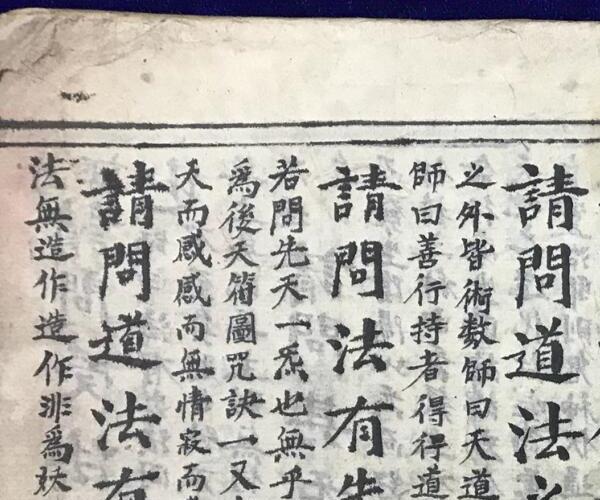 請問道法
之外皆術數師曰天道
師曰善行持者得行道
請問法有先
若問先天一炁也無乎
為後天符圖咒訣一又
天而感感而無情寂而
請問道法有
法無造作造作非為妖